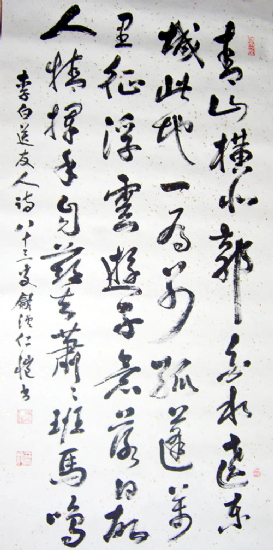 青山橫北郭白水遶東
城此地一為別孤蓬萬
里征浮雲遊子意落日故
人情揮手自茲去蕭〻班馬鳴
李白送友人詩八十三叟仁愷書